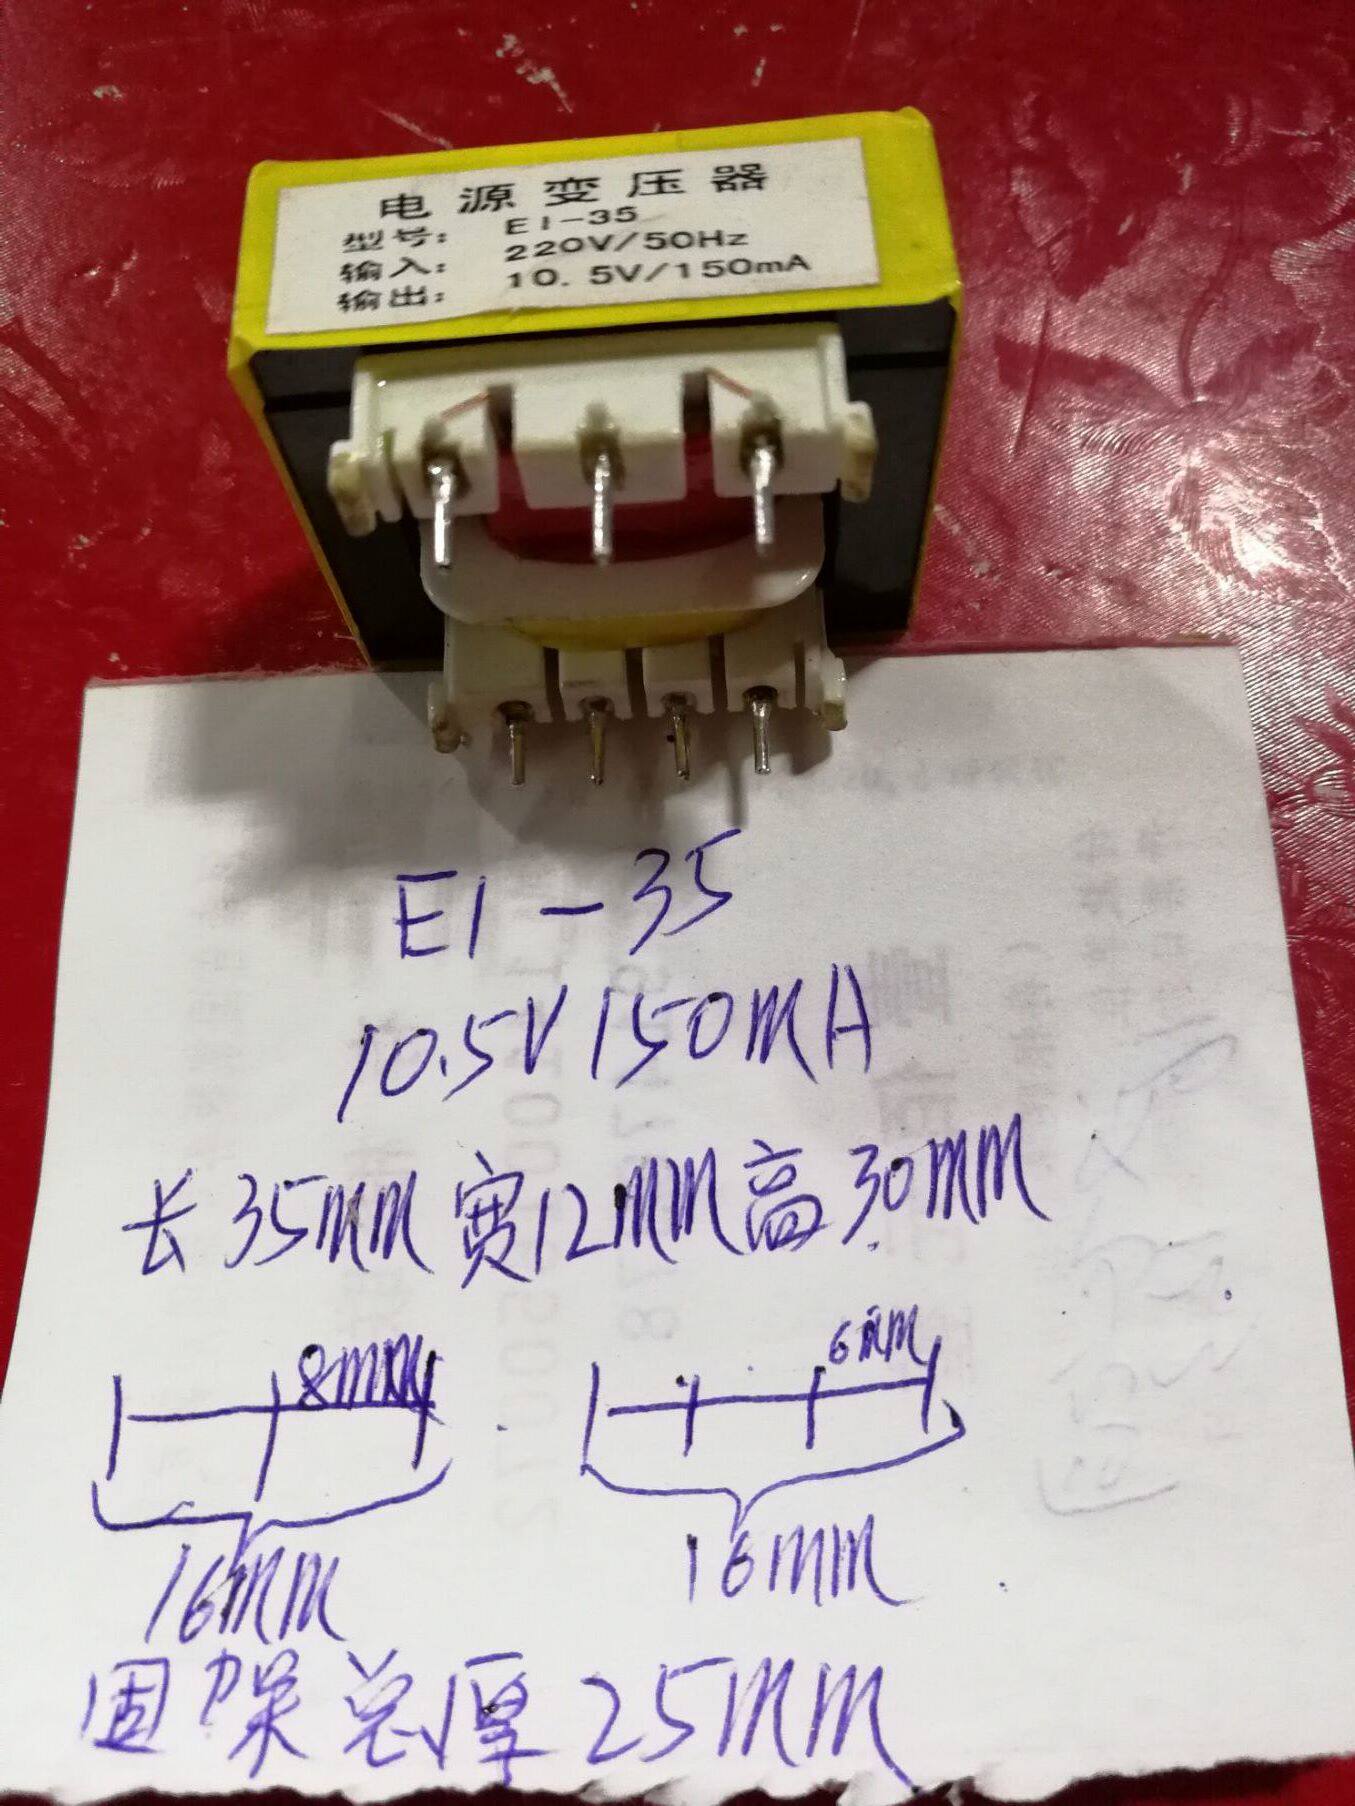 电源变压器
型号: EI-35
输入: 220V/50Hz
输出: 10.5V/150mA
EI-35
10.5V 150mA
长35mm 宽12mm 高30mm
8mm 6mm
16mm 16mm
固架总厚25mm